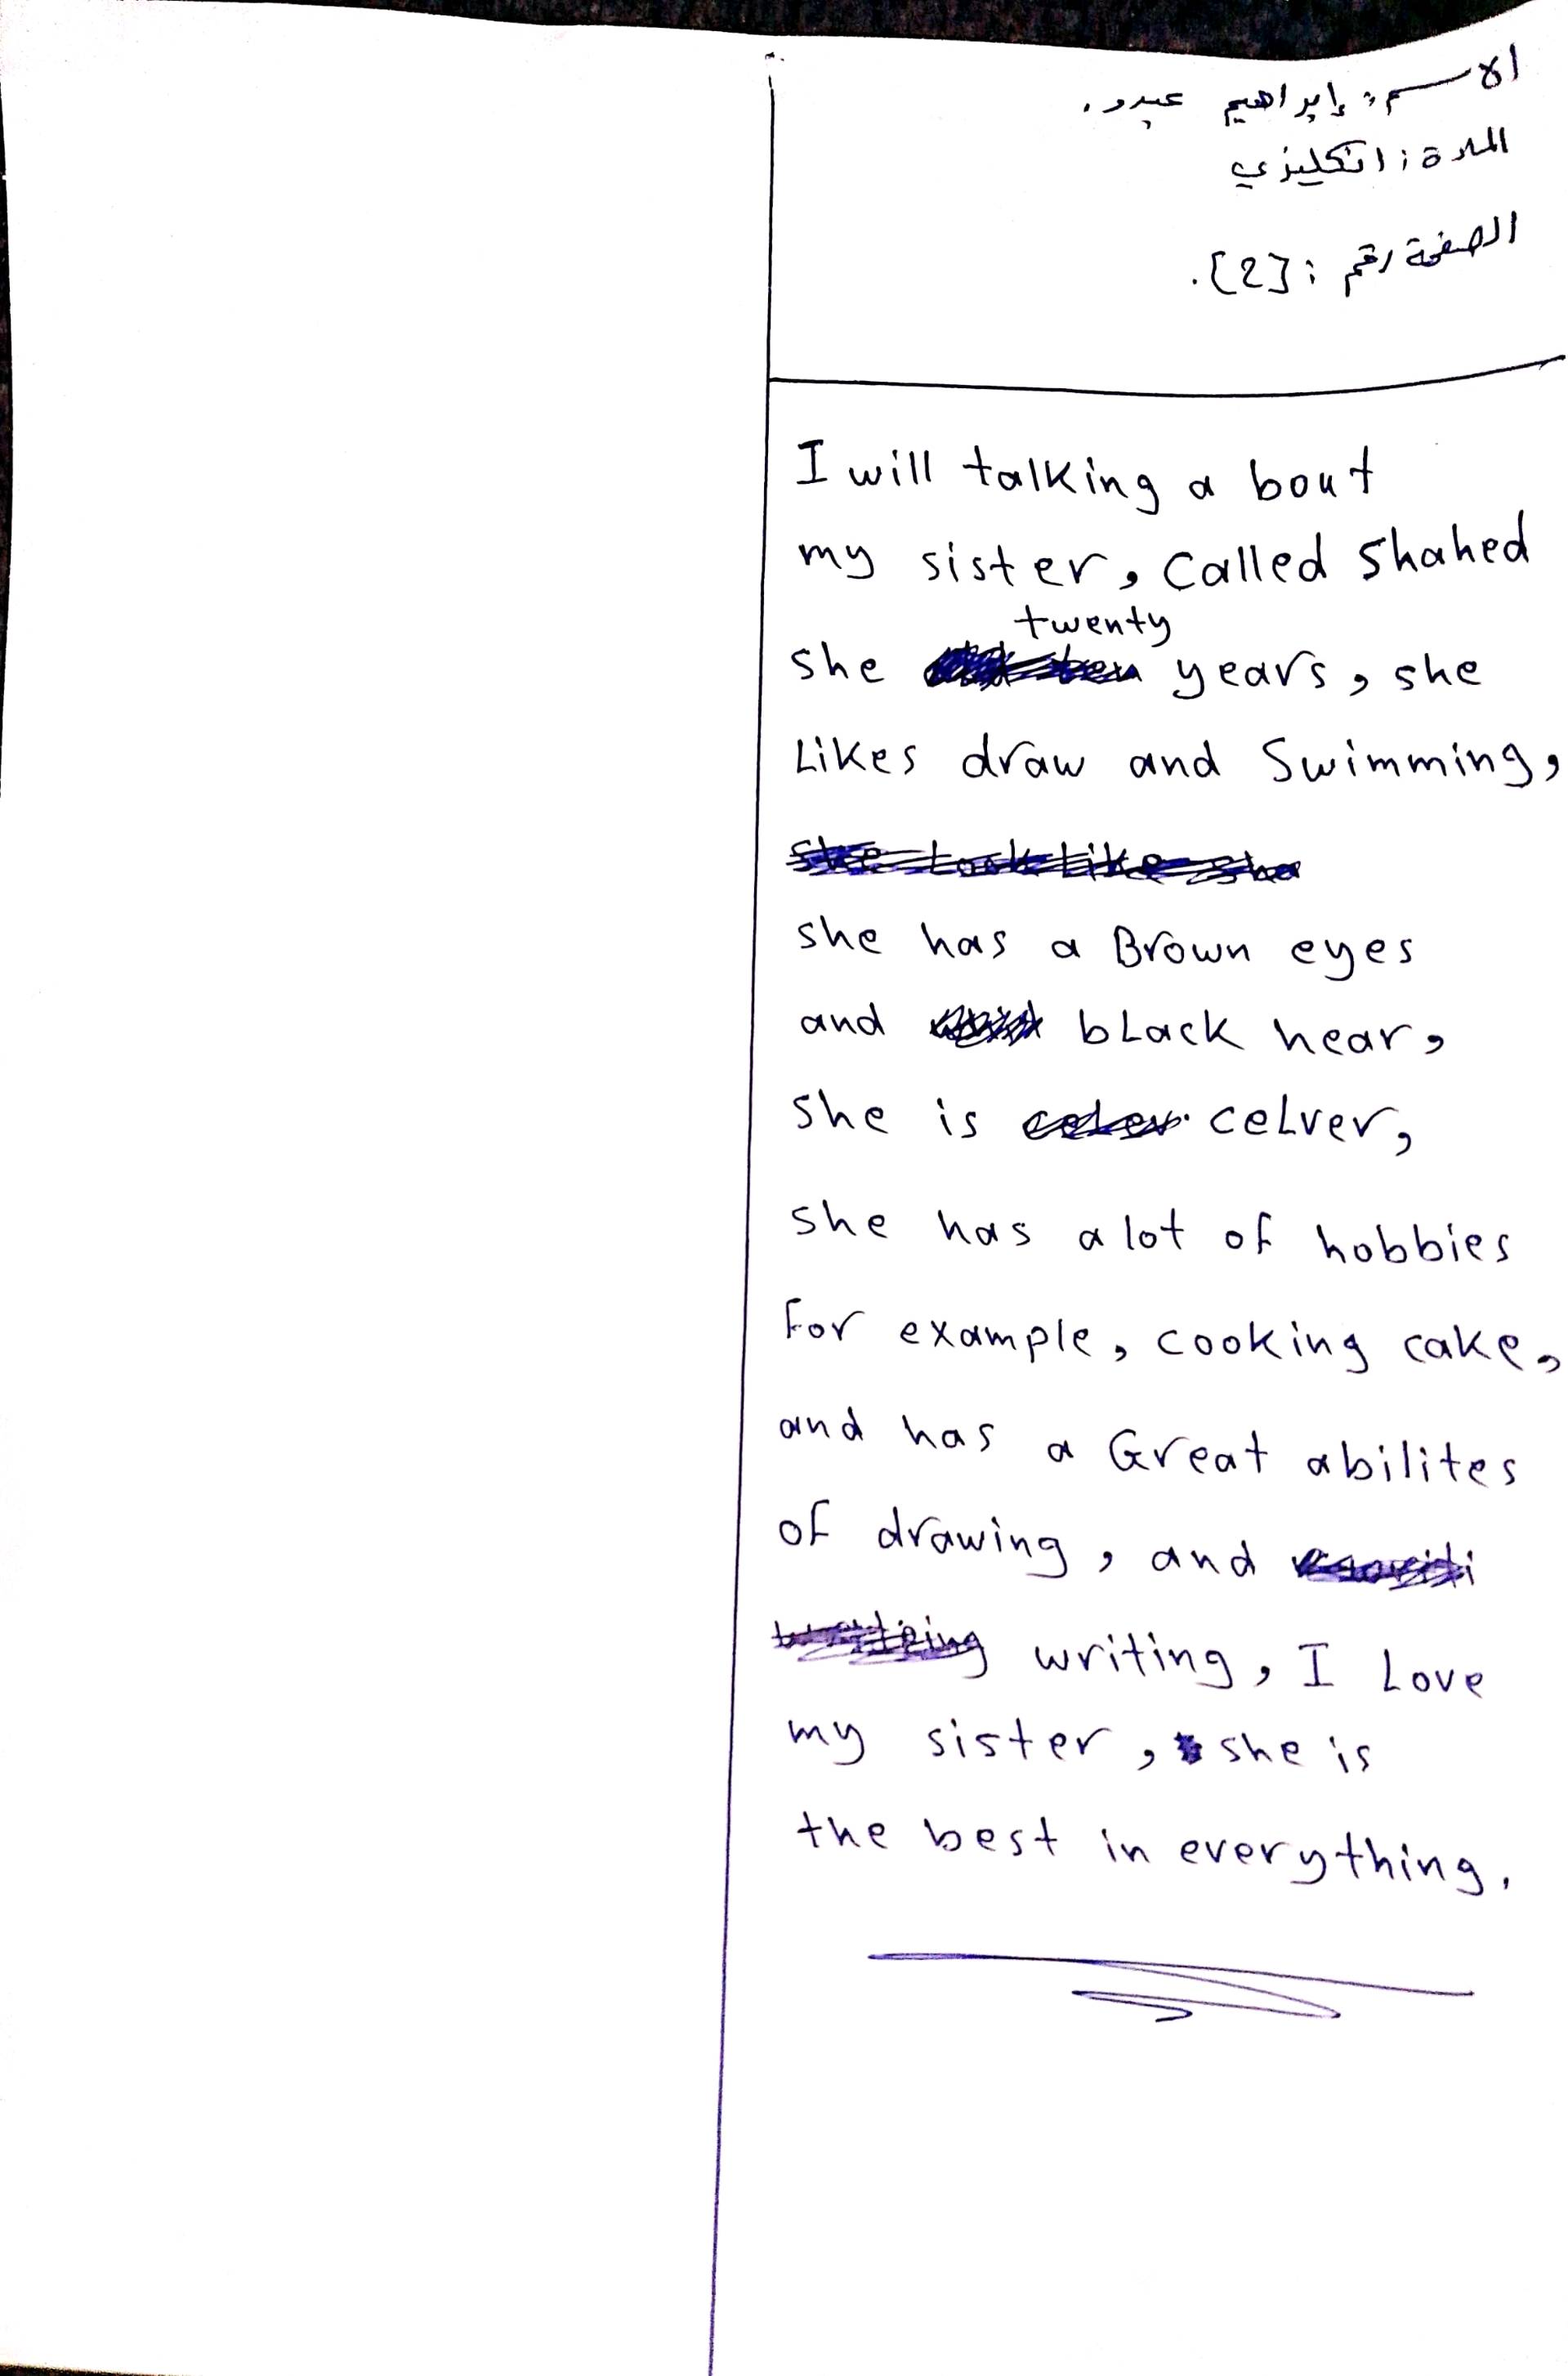 الاسم: إبراهيم عبدو.
المادة: انكليزي
الصفحة رقم: [2].
I will talking a bout
my sister, called shahed
twenty
she years, she
Likes draw and Swimming,
she has a Brown eyes
and bLack hear,
she is ceLver,
she has alot of hobbies
For example, cooking cake,
and has a Great abilites
of drawing, and
writing, I Love
my sister, she is
the best in everything.